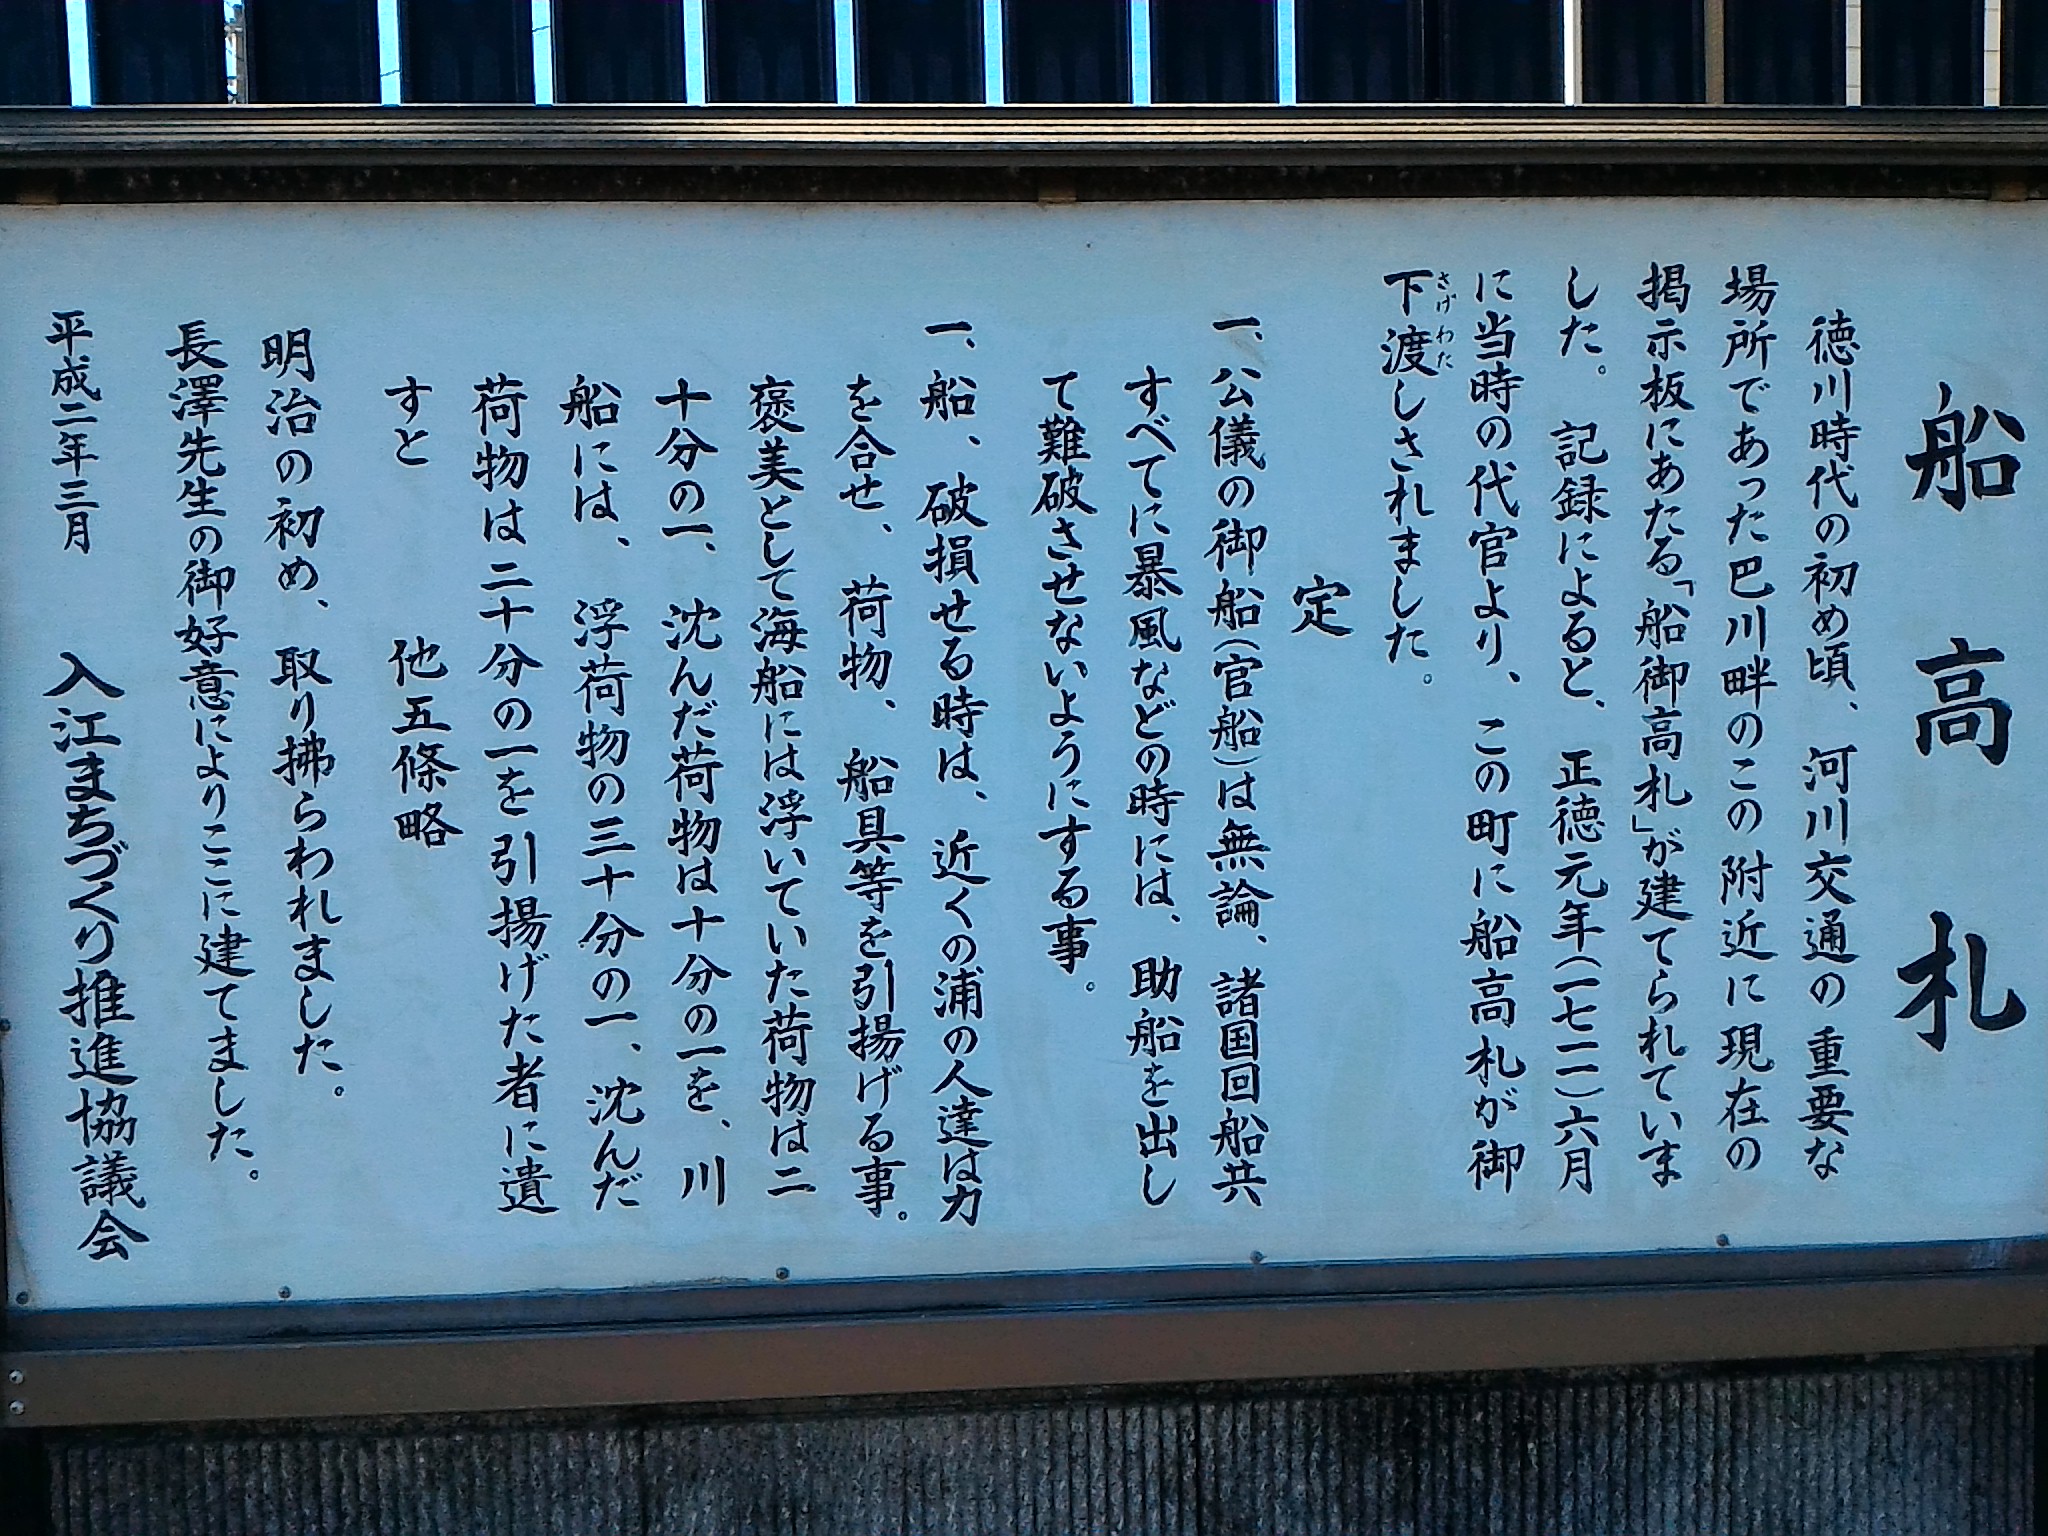 船高札
徳川時代の初め頃、河川交通の重要な
場所であった巴川畔のこの附近に現在の
掲示板にあたる「船御高札」が建てられていま
した。記録によると、正徳元年(一七一一)六月
に当時の代官より、この町に船高札が御
下渡しされました。
さげわた
定
一、公儀の御船(官船)は無論、諸国回船共
すべてに暴風などの時には、助船を出し
て難破させないようにする事。
一、船、破損せる時は、近くの浦の人達は力
を合せ、荷物、船具等を引揚げる事。
褒美として海船には浮いていた荷物は二
十分の一、沈んだ荷物は十分の一を、川
船には、浮荷物の三十分の一、沈んだ
荷物は二十分の一を引揚げた者に遺
すと 他五條略
明治の初め、取り拂らわれました。
長澤先生の御好意によりここに建てました。
平成二年三月 入江まちづくり推進協議会